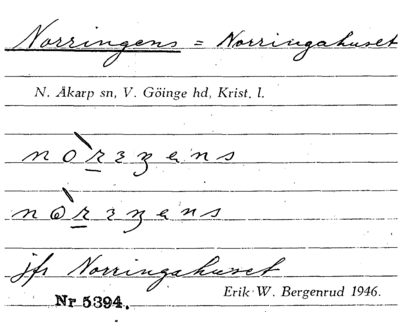 Norringens = Norringahuset
N. Åkarp sn, V. Göinge hd, Krist. l.
jfr Norringahuset
Nr 5394.
Erik W. Bergenrud 1946.